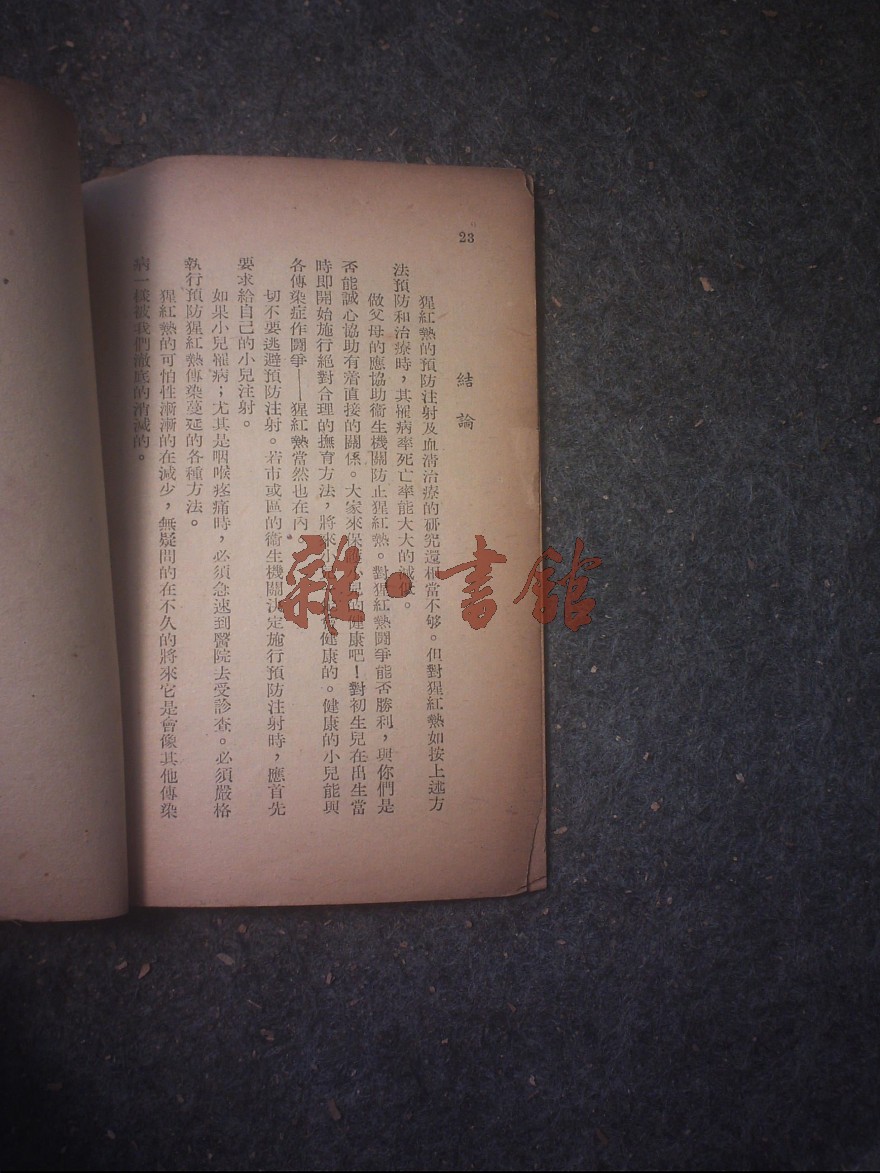 23
結論
猩紅熱的預防注射及血清治療的研究還相當不够。但對猩紅熱如按上述方
法預防和治療時，其罹病率死亡率能大大的減低。
做父母的應協助衞生機關防止猩紅熱。對猩紅熱鬪爭能否勝利，與你們是
否能誠心協助有着直接的關係。大家來保護小兒的健康吧！對初生兒在出生當
時即開始施行絕對合理的撫育方法，將來小兒健康的。健康的小兒能與
各傳染症作鬪爭——猩紅熱當然也在內。
切不要逃避預防注射。若市或區的衞生機關決定施行預防注射時，應首先
要求給自己的小兒注射。
如果小兒罹病；尤其是咽喉疼痛時，必須急速到醫院去受診查。必須嚴格
執行預防猩紅熱傳染蔓延的各種方法。
猩紅熱的可怕性漸漸的在減少，無疑問的在不久的將來它是會像其他傳染
病一樣被我們澈底的消滅的。
雜·書館